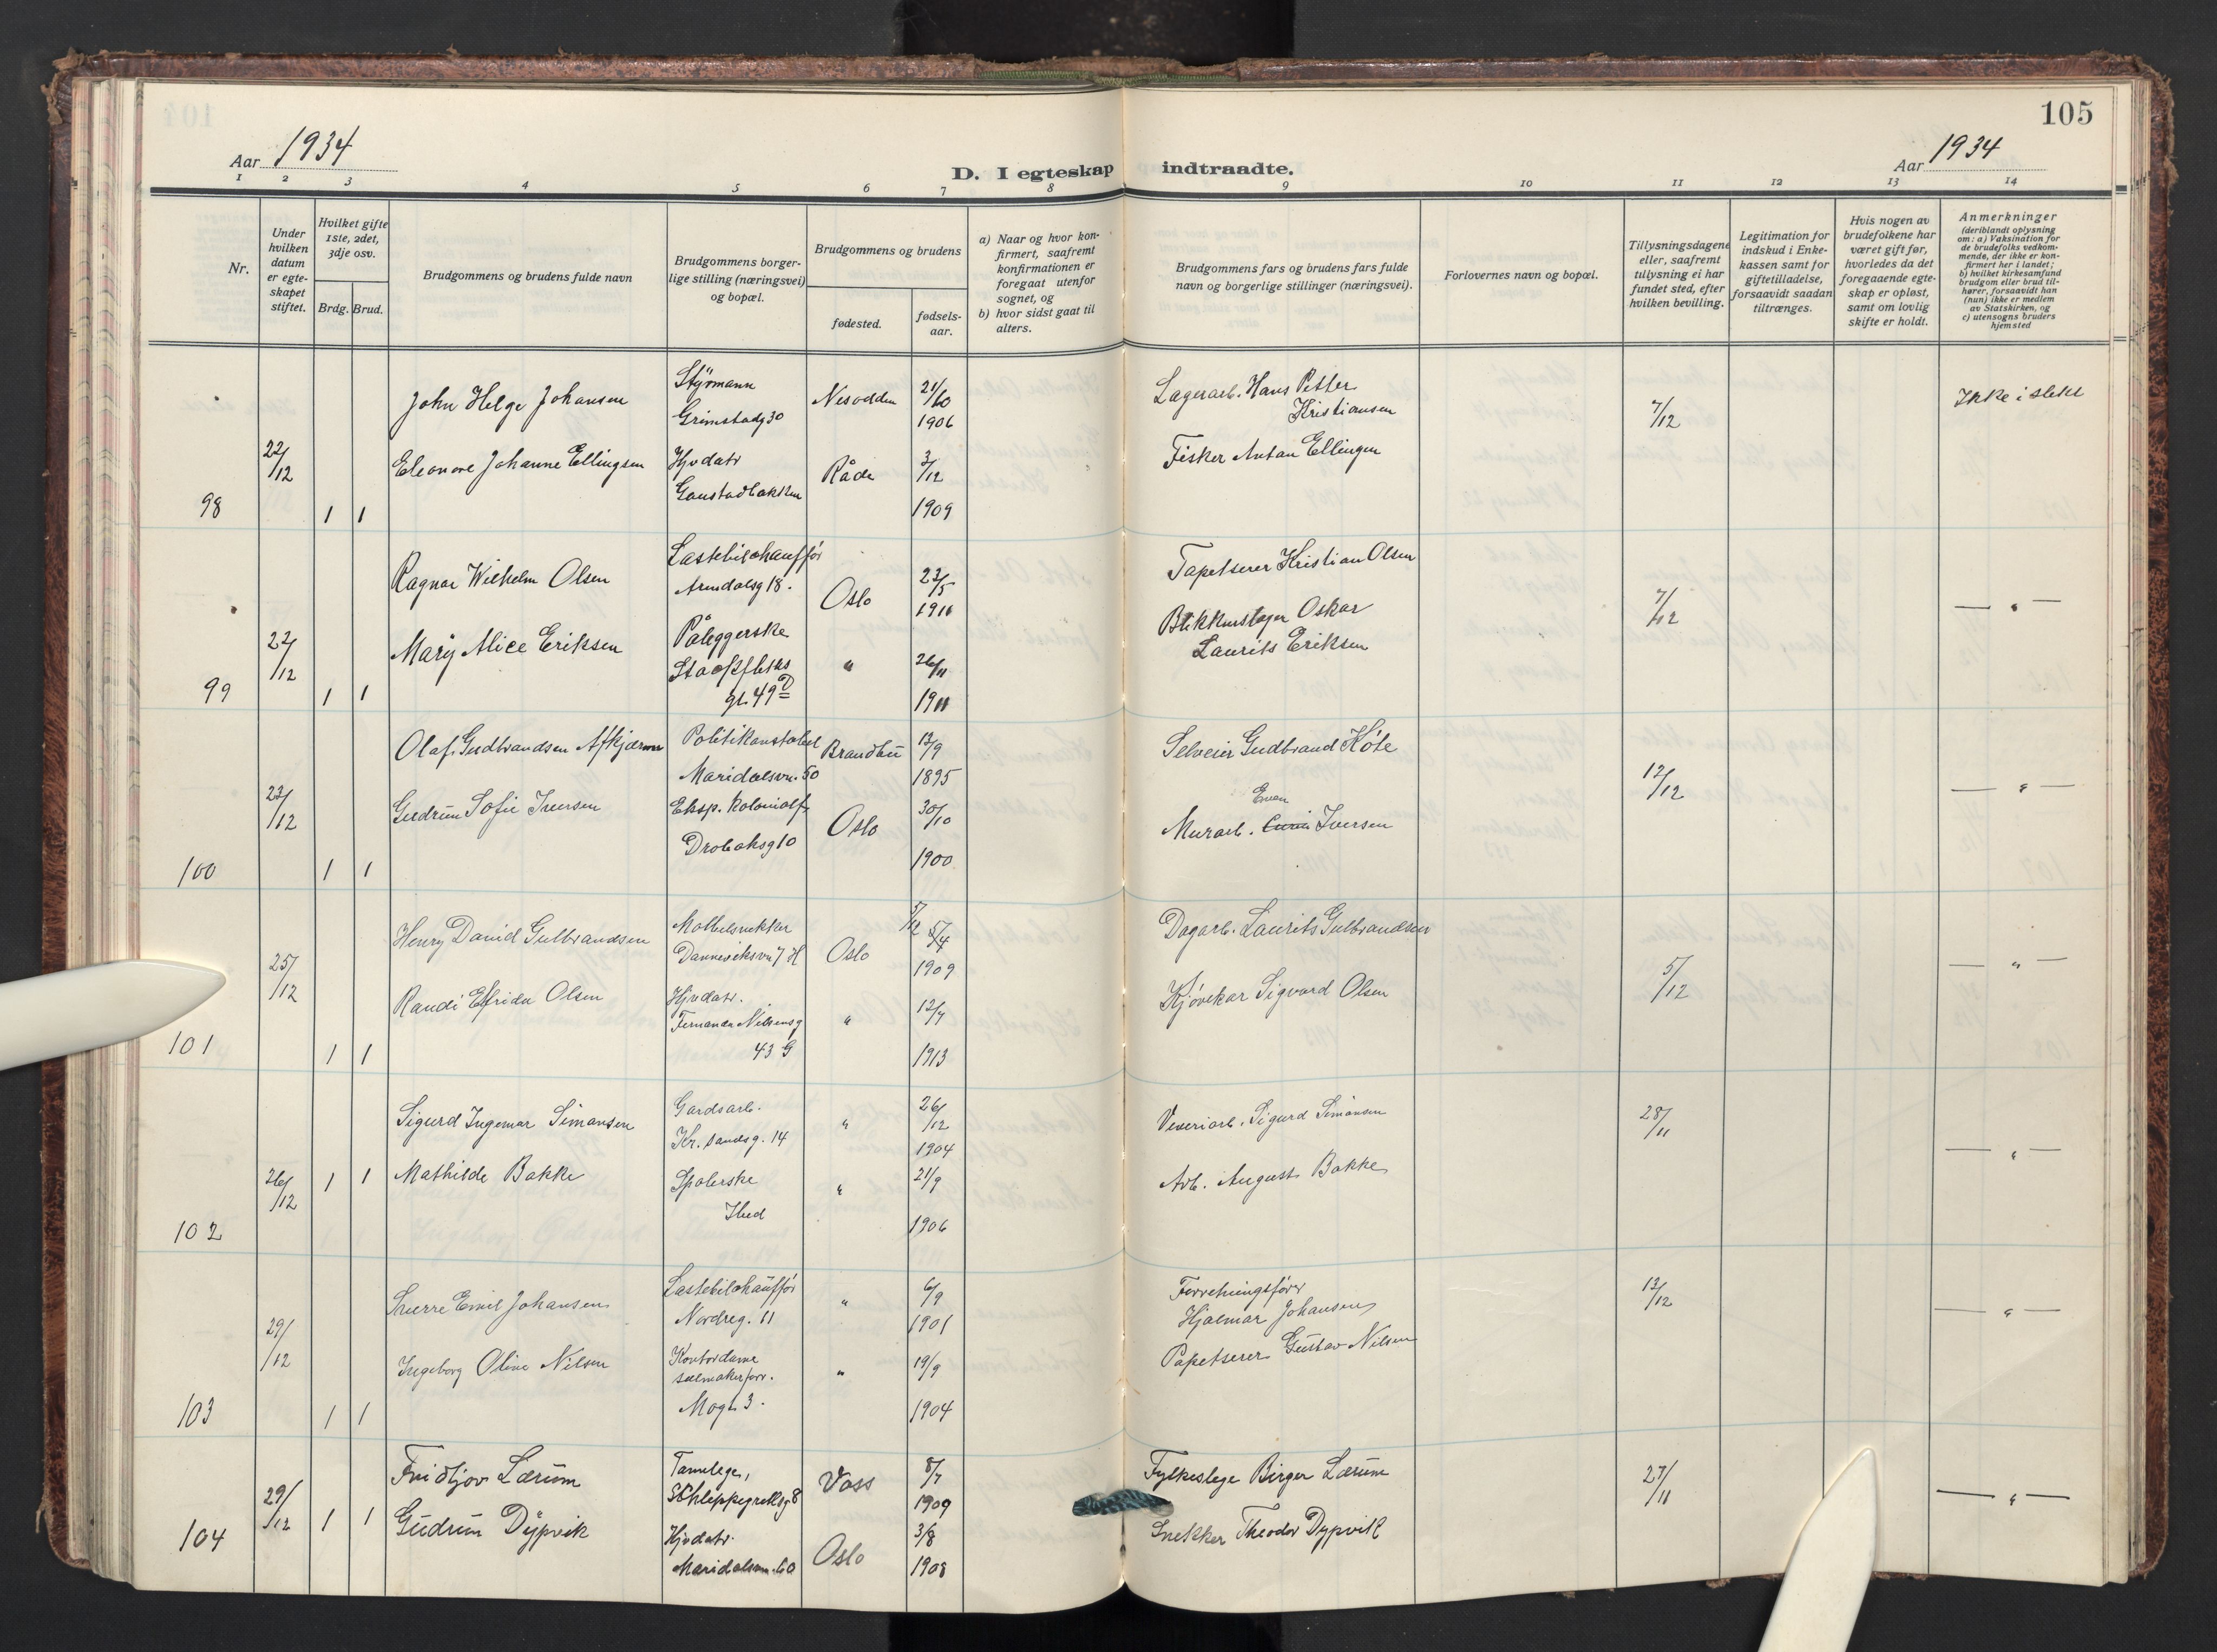 105
Aar 1934
D. I egteskap indtraadte.
Aar 1934
1 2 3 4 5 6 7 8 9 10 11 12 13 14
Nr.
Under hvilken datum er egte-skapet stiftet.
Hvilket gifte 1ste, 2det, 3dje osv.
Brdg. Brud.
Brudgommens og brudens fulde navn
Brudgommens borger-lige stilling (næringsvei) og bopæl.
Brudgommens og brudens
fødested.
fødsels-aar.
a) Naar og hvor kon-firmert, saafremt konfirmationen er foregaat utenfor sognet, og
b) hvor sidst gaat til alters.
Brudgommens fars og brudens fars fulde navn og borgerlige stillinger (næringsvei).
Forlovernes navn og bopæl.
Tillysningsdagene eller, saafremt tillysning ei har fundet sted, efter hvilken bevilling.
Legitimation for indskud i Enke-kassen samt for giftetilladelse, forsaavidt saadan tiltrænges.
Hvis nogen av brudefolkene har været gift før, hvorledes da det foregaaende egte-skap er opløst, samt om lovlig skifte er holdt.
Anmerkninger
(deriblandt oplysning om: a) Vaksination for de brudefolks vedkom-mende, der ikke er kon-firmert her i landet; b) hvilket kirkesamfund brudgom eller brud til-hører, forsaavidt han (hun) ikke er medlem av Statskirken, og c) utensogns bruders hjemsted
98 22/12 1 1
John Helge Johansen Styrmann Grimstadg 30 Nesodden 21/10 1906 Lagerarb. Hans Petter Kristiansen 7/12 Ikke i slekt
Eleonore Johanne Ellingsen Hjvdatr Gaustadbakken Råde 3/12 1909 Fisker Anton Ellingsen
99 22/12 1 1
Ragnar Wilhelm Olsen Lastebilchauffør Arendalsg 18. Oslo 23/5 1911 Tapetserer Kristian Olsen 7/12 — " —
Mary Alice Eriksen Påleggerske gt. 49 D " 26/11 1911 Blikkenslager Oskar Laurits Eriksen
100 22/12 1 1
Olaf Gudbrandsen Politikonstabel Maridalsvn. 50 Brandbu 13/9 1895 Selveier Gudbrand 12/12 — " —
Gudrun Sofie Iversen Eksp. kolonialf. Drøbaksg 10 Oslo 30/10 1900 Murarb. Even Iversen
101 25/12 1 1
Henry David Gulbrandsen Møbelsnekker Danneviksvn 7 H Oslo 5/4 1909 Dagarb. Laurits Gulbrandsen 5/12 — " —
Randi Elfrida Olsen Hjvdatr. Fernanda Nilsensg 43 G " 1913 Kjørekar Sigvard Olsen
102 26/12 1 1
Sigurd Ingemar Simonsen Gardsarb. Kr.sandsg. 14 " 26/12 1904 Veveriarb. Sigurd Simonsen 28/11 — " —
Mathilde Bakke Spolerske Ibid " 21/9 1906 Arb. August Bakke
103 29/12 1 1
Sverre Emil Johansen Lastebilchauffør Nordreg. 11 " 6/9 1901 Forretningsfører Hjalmar Johansen 13/12 — " —
Ingeborg Oline Nilsen Kontordame salmakerforr. Mogt. 3. " 19/9 1904 Gustav Nilsen
104 29/12 1 1
Fridtjov Lærum Tannlege, Schleppegrellsg 8 Voss 8/7 1909 Fylkeslege Birger Lærum 27/11 — " —
Gudrun Dypvik Hjvdatr. Maridalsvn. 60 Oslo 3/8 1908 Snekker Theodor Dypvik